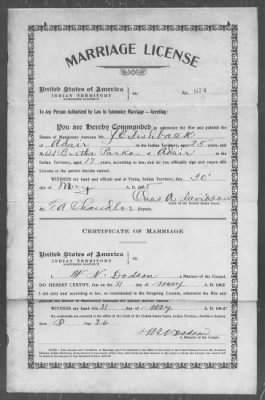 MARRIAGE LICENSE
United States of America
INDIAN TERRITORY
NORTHERN DISTRICT
ss
No. 674
To Any Person Authorized by Law to Solemnize Marriage—Greeting:
You are Hereby Commanded to solemnize the Rite and publish the
Banns of Matrimony between Mr. J.E. Fishback
of Adair in the Indian Territory, aged 25 years, and
Miss Bertha Parks of Adair in the
Indian Territory, aged 17 years, according to law, and do you officially sign and return this
License to the parties therein named.
WITNESS my hand and official seal at Vinita, Indian Territory, this 30th
day of May A. D. 190 5
Chas A. Davidson
Clerk of the United States Court.
By T.A. Chandler Deputy.
CERTIFICATE OF MARRIAGE
United States of America
INDIAN TERRITORY
NORTHERN DISTRICT
ss
I, W. N. Dodson, a Minister of the Gospel,
DO HEREBY CERTIFY, that on the 31 day of May A. D. 190
I did duly and according to law, as commanded in the foregoing License, solemnize the Rite and
publish the Banns of Matrimony between the parties therein named.
WITNESS my hand this 31 day of May A. D. 190
My credentials are recorded in the office of the Clerk of the United States Court, Indian Territory, Northern District,
Book B Page 26
W N Dodson
a Minister of the Gospel